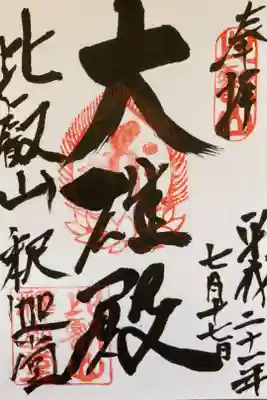 奉拝
平成二十一年
七月十七日
大雄殿
比叡山 釈迦堂